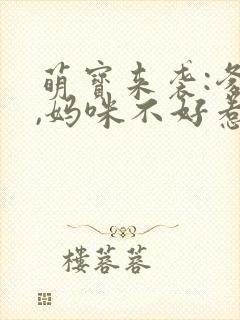 萌宝来袭:爹
,妈咪不好惹
楼蓉蓉